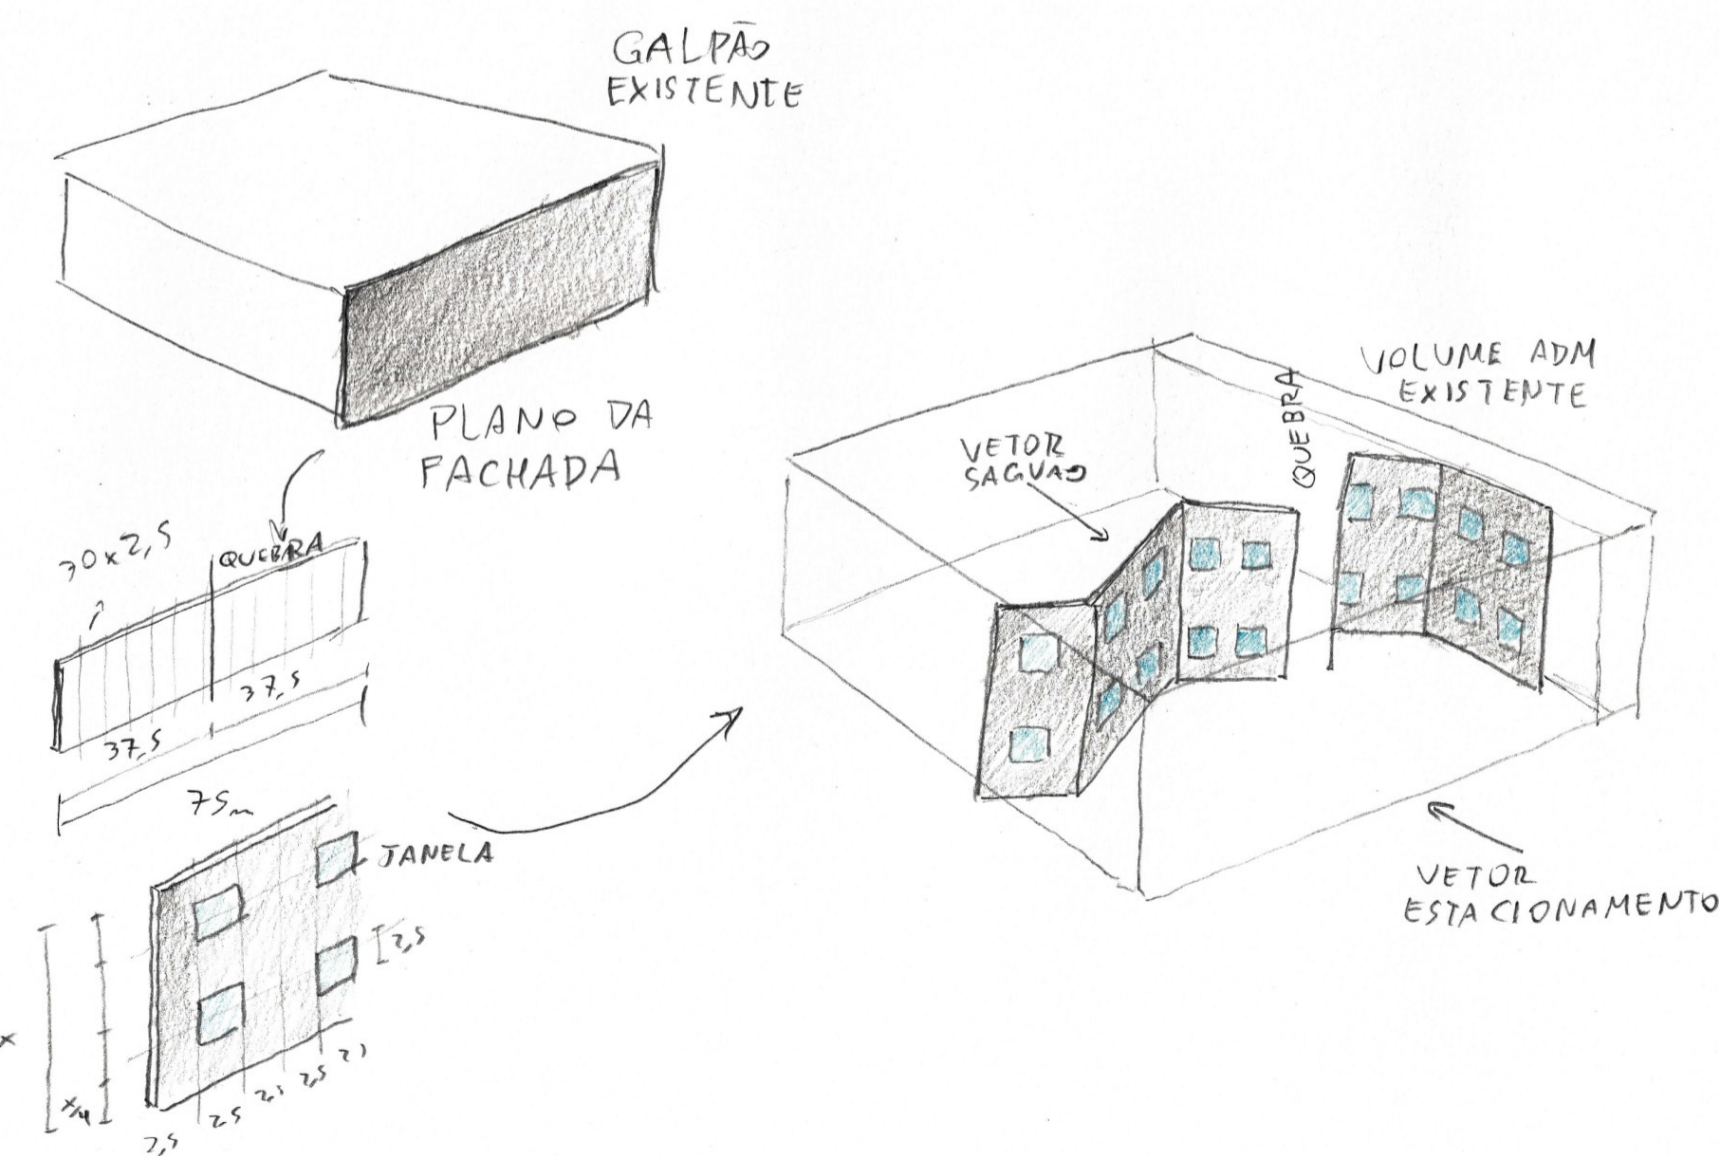 GALPÃO
EXISTENTE
PLANO DA
FACHADA
30x2,5
QUEBRA
37,5
37,5
75m
JANELA
2,5
x
x/4
2,5
2,5
2,5
2,5
VOLUME ADM
EXISTENTE
QUEBRA
VETOR
SAGUAO
VETOR
ESTACIONAMENTO